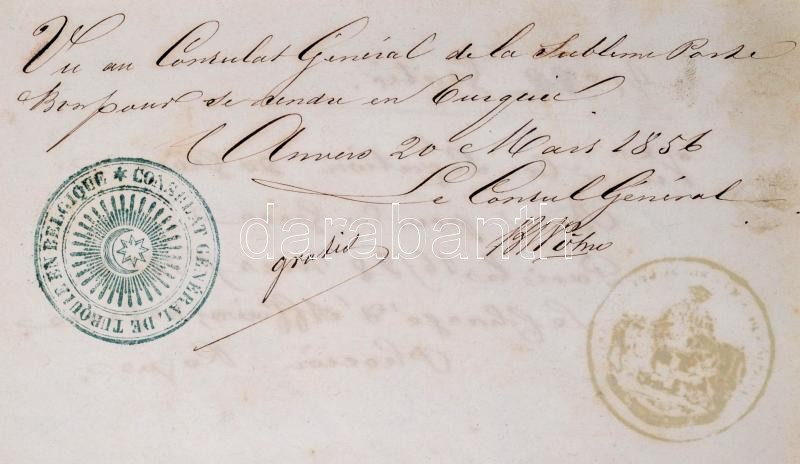 Vu au Consulat Général de la Sublime Porte
Bon pour se rendre en Turquie
Anvers 20 Mars 1856
Le Consul Général
gratis
CONSULAT GÉNÉRAL DE TURQUIE EN BELGIQUE
darabanth